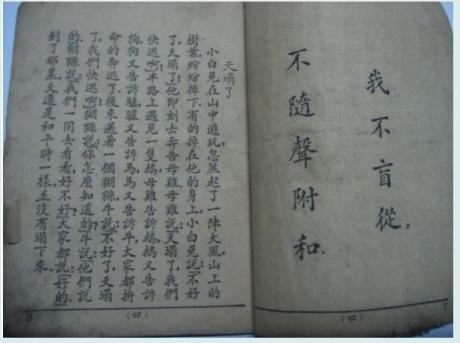 我不盲從,
不隨聲附和.
(四)
天塌了
小白兔在山中遊玩忽然起了一陣大風山上的
樹葉紛紛掉下有的掉在他的身上小白兔說不好
了天塌了他即刻去奔告母雞母雞說天塌了我們
快逃啊半路上遇見一隻鵝母雞告訴鵝鵝又告訴
狗狗又告訴驢驢又告訴馬馬又告訴牛大家都拚
命的奔逃了後來遇着一個猢猻牛說不好了天塌
了我們快逃啊猢猻說你怎麼知道的牛說他們說
的猢猻說我們一同去看看好不好大家都說好的
到了那裏天還是和平時一樣並沒有塌下來
(四)
8